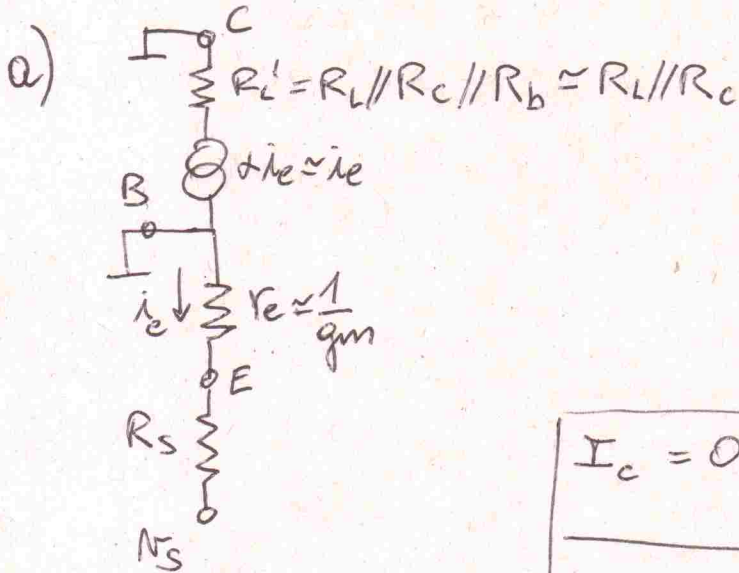 a)
C
R_L' = R_L // R_c // R_b ≃ R_L // R_c
αi_e ≃ i_e
B
i_e ↓ r_e ≃ 1/gm
E
R_S
I_c = 0
v_S